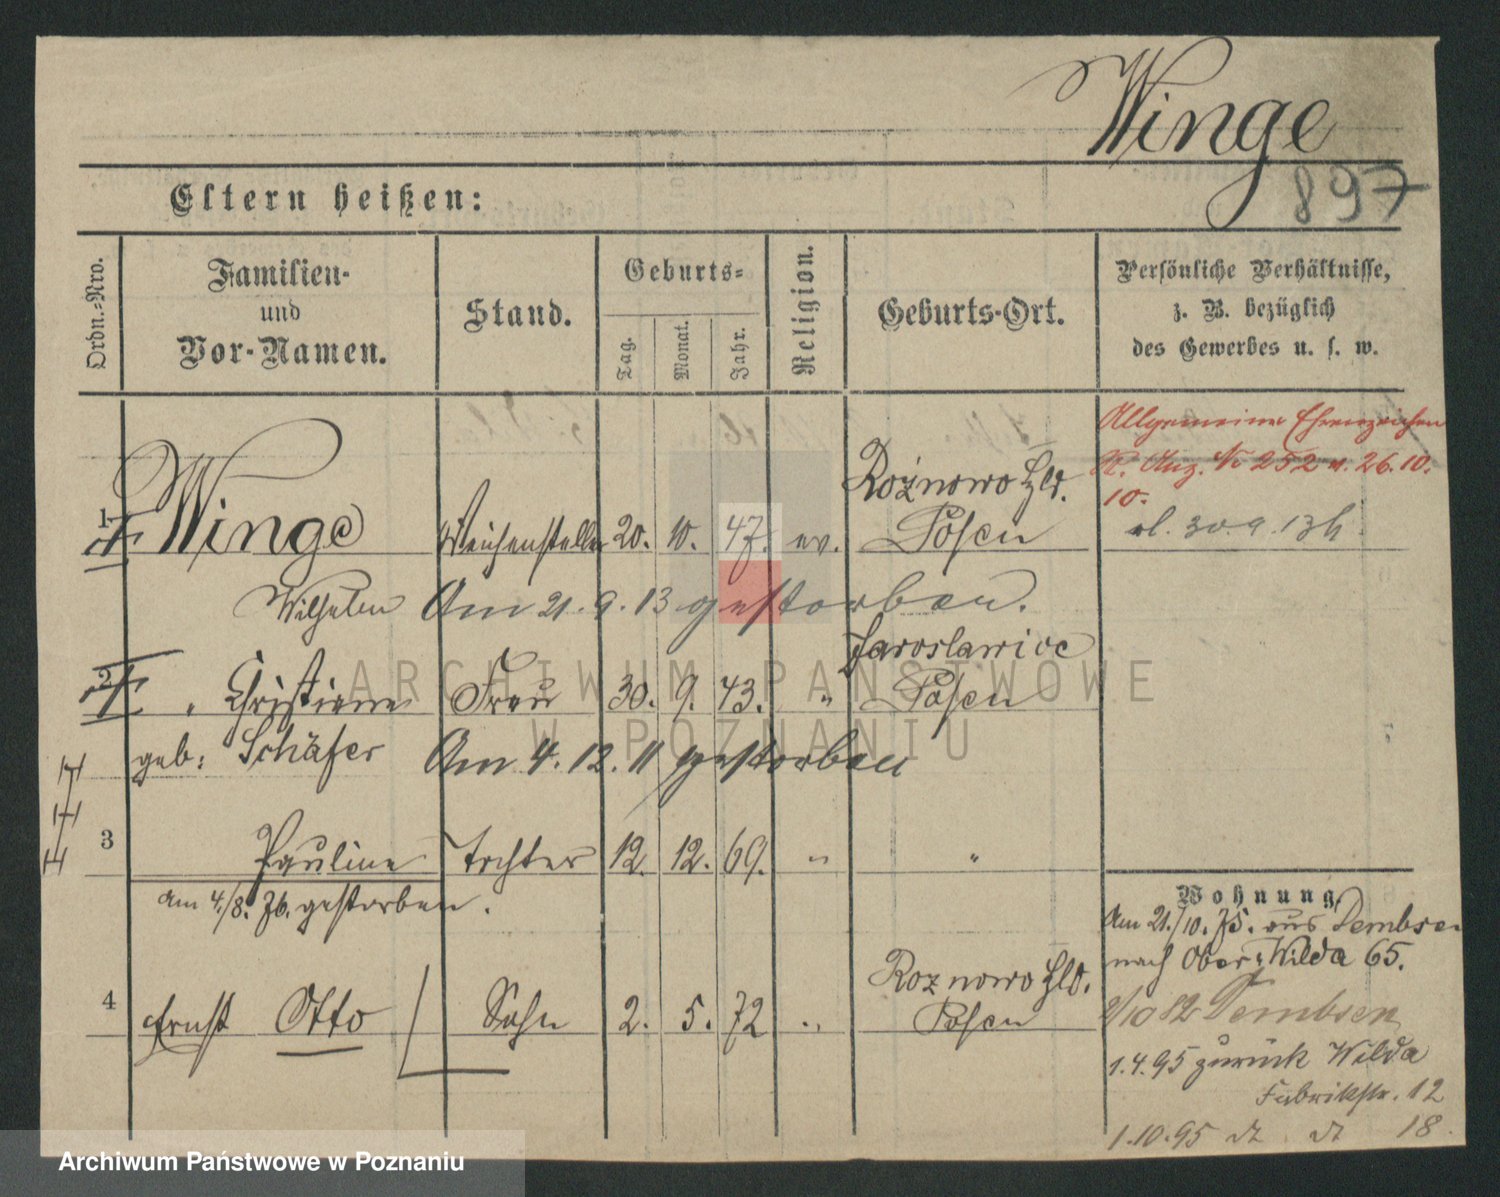 Winge
897
Eltern heißen:
Ordn.-Nro.
Familien-
und
Vor-Namen.
Stand.
Geburts-
Tag.
Monat.
Jahr.
Religion.
Geburts-Ort.
Persönliche Verhältnisse,
z. B. bezüglich
des Gewerbes u. s. w.
Allgemeine Ehrenzeichen
R. Anz. No 252 v. 26.10.
10.
30.9.13
1 Winge Weichensteller 20. 10. 47. ev. Rożnowo Hld.
Posen
Wilhelm Am 21.9.13 gestorben.
2 " Christiane Frau 30. 9. 43. " Jaroslawice
Posen
geb: Schäfer Am 4.12.11 gestorben
3 Pauline Tochter 12. 12. 69. " "
am 4./8. 76. gestorben.
4 Ernst Otto Sohn 2. 5. 72 " Roznowo Hld.
Posen
Wohnung.
Am 21./10. 75. aus Dembsen
nach Ober-Wilda 65.
2/10 82 Dembsen
1.4.95 zurück Wilda
Fabrikstr. 12
1.10.95 dt dt 18.
ARCHIWUM PAŃSTWOWE
W POZNANIU
Archiwum Państwowe w Poznaniu